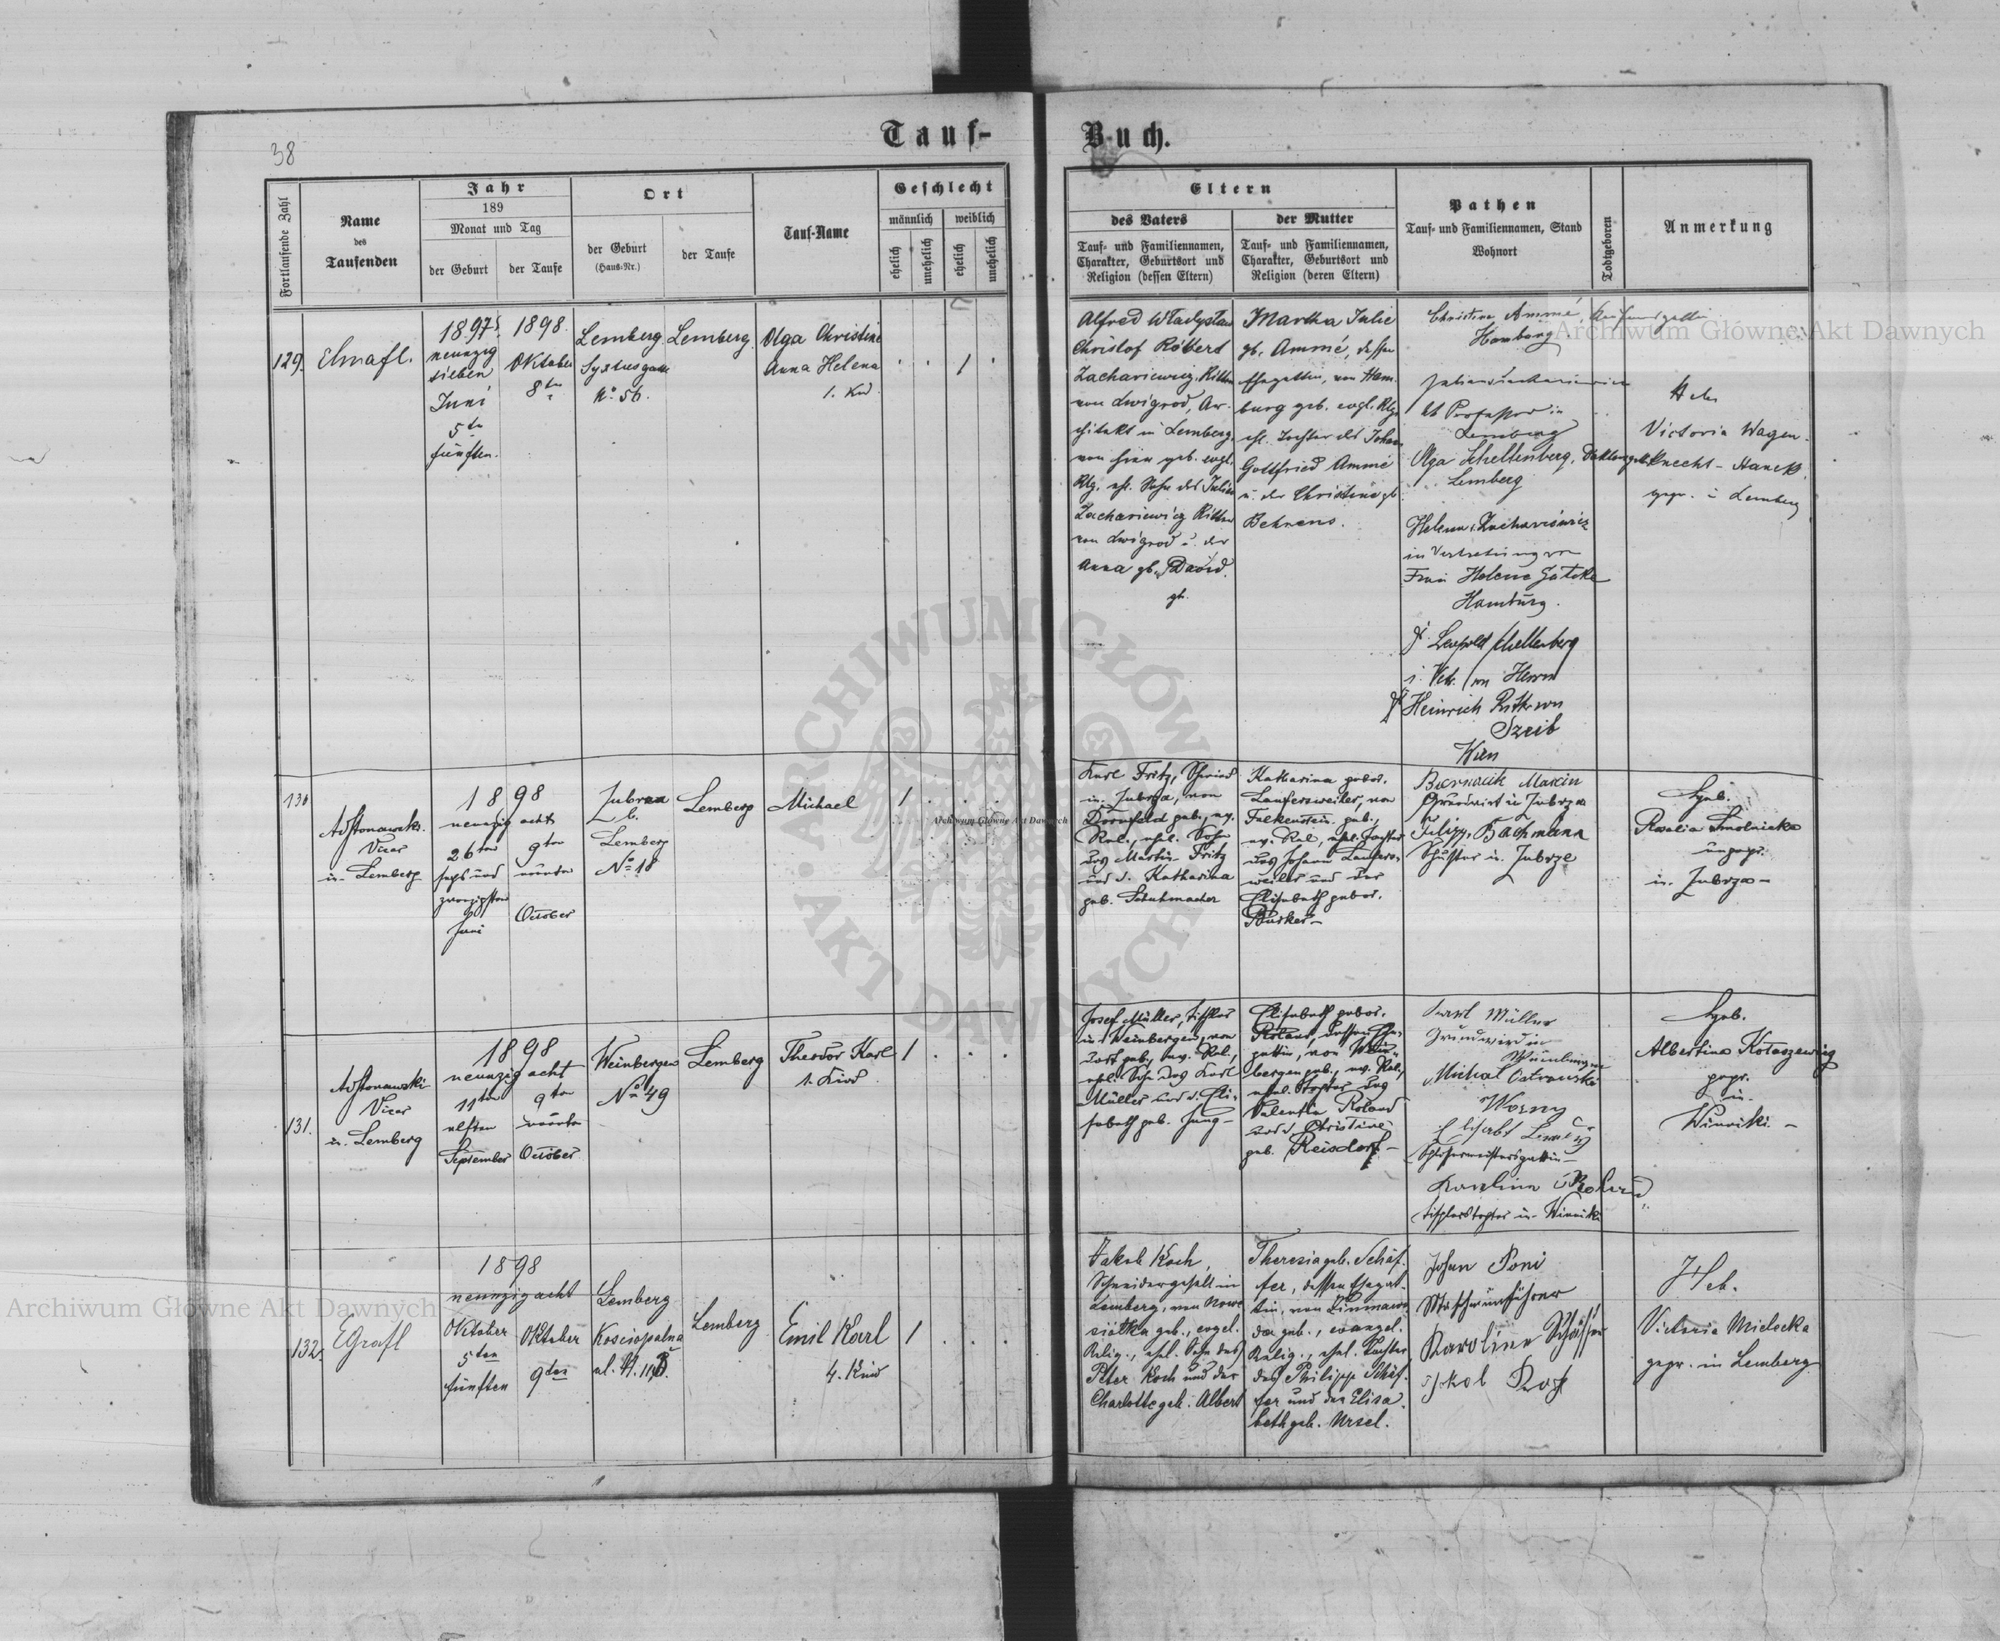 38
Tauf-
Buch.
Fortlaufende Zahl
Name
des
Taufenden
Jahr
189
Monat und Tag
der Geburt
der Taufe
Ort
der Geburt
(Haus-Nr.)
der Taufe
Tauf-Name
Geschlecht
männlich
weiblich
ehelich
unehelich
ehelich
unehelich
Eltern
des Vaters
Tauf- und Familiennamen,
Charakter, Geburtsort und
Religion (dessen Eltern)
der Mutter
Tauf- und Familiennamen,
Charakter, Geburtsort und
Religion (deren Eltern)
Pathen
Tauf- und Familiennamen, Stand
Wohnort
Todtgeboren
Anmerkung
129.
1897
neunzig
sieben
Juni
5ten
fünften.
1898.
Oktober
8ten
Lemberg
Sixtusgasse
No. 56.
Lemberg.
Olga Christine
Anna Helena
1. Kind
1
Alfred Władysław
Christof Robert
Zachariewicz, Ritter
von Lwigrod, Ar-
chitekt in Lemberg,
von hier geb. evgl.
Rlg. ehl. Sohn des Julian
Zachariewicz Ritter
von Lwigrod u. der
Anna gb.
Martha Julie
gb. Ammé, dessen
Ehegattin, von Ham-
burg geb. evgl. Rlg.
ehl. Tochter des Johann
Gottfried Ammé
u. der Christine gb
Behrens.
Christine Ammé,
Hamburg
Professor in
Lemberg
Olga Schellenberg,
Lemberg
Helena Zachariewicz
in Vertretung von
Frau Helene
Hamburg.
Leopold Schellenberg
i. Vertr. von Herrn
Heinrich Ritter von
Wien
Heb.
Victoria Wagen-
knecht-Hanek
gepr. in Lemberg
130
Vicar
in Lemberg
1898
neunzig acht
26ten
sechs und
zwanzigsten
Juni
9ten
neunten
October
Zubrza
b.
Lemberg
No 18
Lemberg
Michael
1
Karl Fritz, Schmied
in Zubrza, von
Dornfeld geb., ev.
Rel., ehel. Sohn
des Martin Fritz
und d. Katharina
geb. Schuhmacher
Katharina gebor.
Laufersweiler, von
Falkenstein geb.,
ev. Rel., ehel. Tochter
des Johann Laufers-
weiler und der
Elisabeth gebor.
Burker
Marcin
Grundwirt in Zubrza
Filipp Bachmann
Schuster in Zubrze
Heb.
Rosalia Smolnicka
ungepr.
in Zubrza
131.
Vicar
in Lemberg
1898
neunzig acht
11ten
elften
September
9ten
neunten
October
Weinbergen
No 49
Lemberg
Theodor Karl
1. Kind
1
Josef Müller, Tischler
in Weinbergen, von
dort geb., ev. Rel.,
ehel. Sohn des Karl
Müller und d. Eli-
sabeth geb. Jung
Elisabeth gebor.
Roland, dessen Ehe-
gattin, von Wein-
bergen geb., ev. Rel.,
ehel. Tochter des
Valentin Roland
und d. Christine
geb. Reisdorf
Karl Müller
Grundwirt in
Weinbergen
Michal Ostrowski
Elisabet
Schlossermeistersgattin
Karolina Roland
Tischlerstochter in Winniki
Heb.
Albertina
gepr.
in
Winniki
132.
1898
neunzig acht
Oktober
5ten
fünften
Oktober
9ten
Lemberg
Kosciopalna
Lemberg
Emil Karl
4. Kind
1
Jakob Koch,
Schneidergeselle in
Lemberg, von Nowe
siołka geb., evgel.
Relig., ehel. Sohn des
Peter Koch und der
Charlotte geb. Albert
Theresia geb. Schäf-
fer, dessen Ehegat-
tin, von
geb., evangel.
Relig., ehel. Tochter
des Philipp Schäf-
fer und der Elisa-
beth geb. Ursel.
Johan Poni
Maschinenführer
Karoline Schäffer
Jakob Koch
Heb.
Victoria Mielecka
gepr. in Lemberg
Archiwum Główne Akt Dawnych
Archiwum Główne Akt Dawnych
Archiwum Główne Akt Dawnych
ARCHIWUM GŁÓWNE AKT DAWNYCH